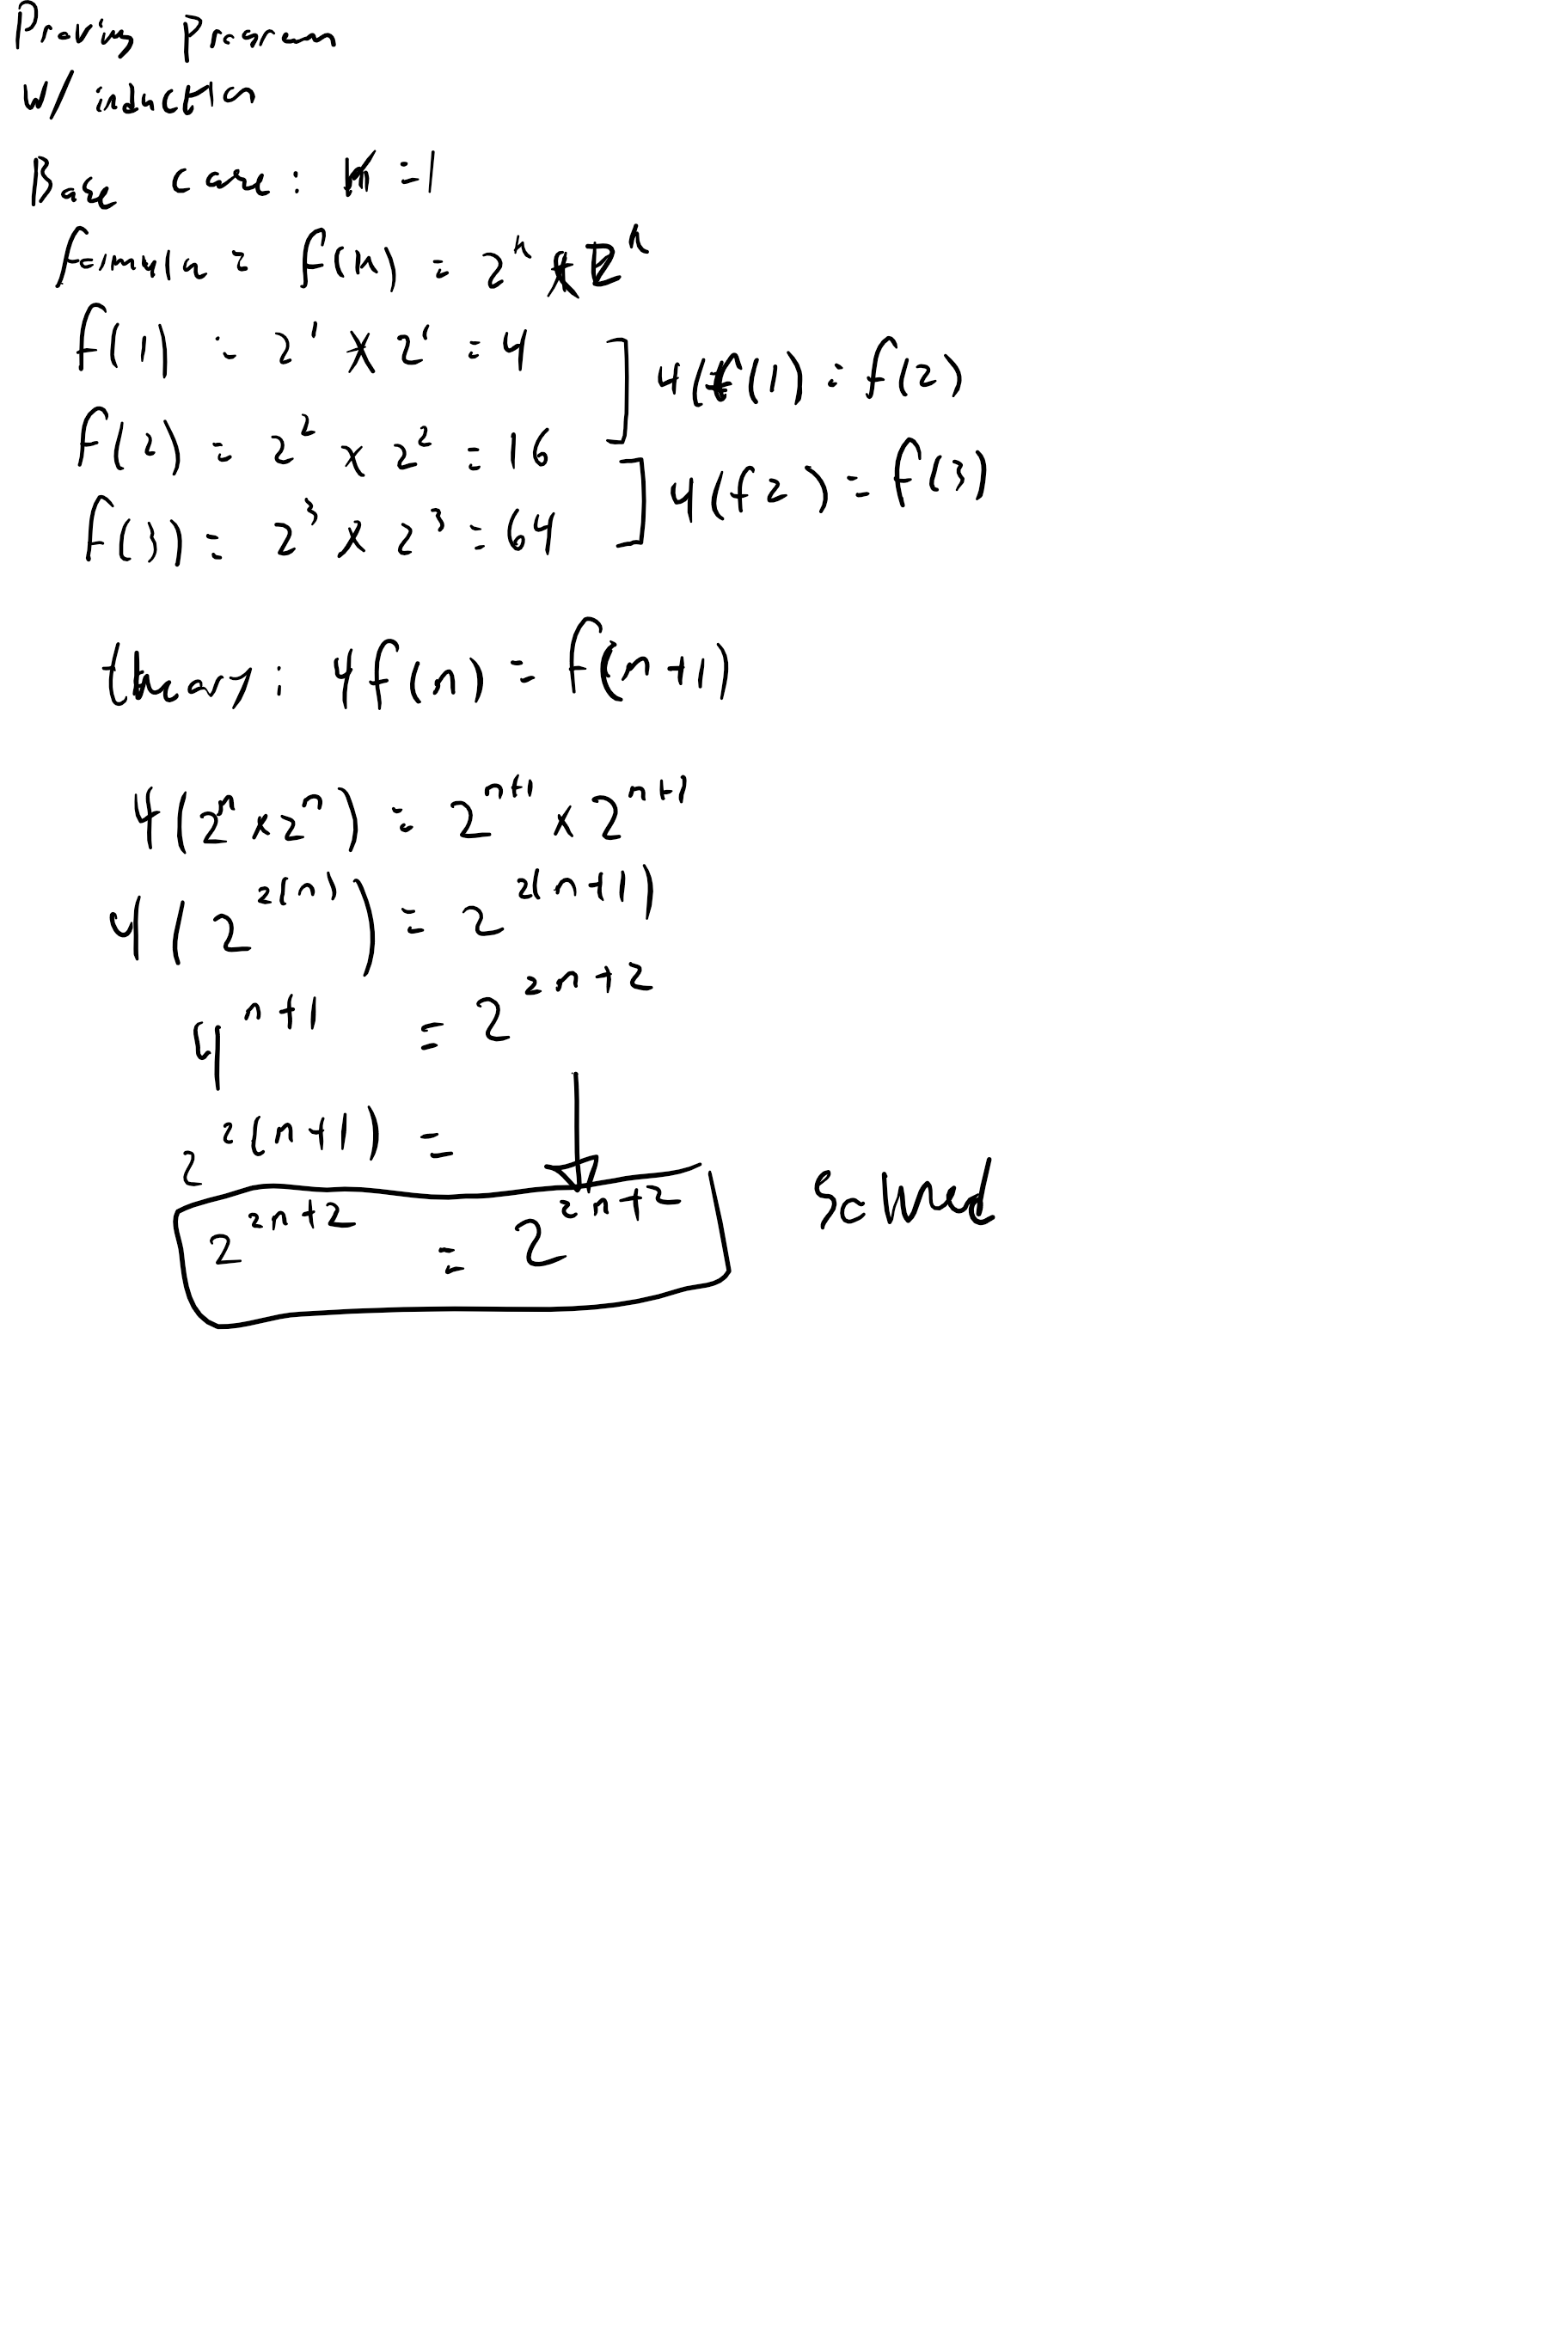 Proving Program
w/ induction
Base case: n=1
formula = f(n) = 2^n * 2^n
f(1) = 2^1 * 2^1 = 4
4(f(1) = f(2)
f(2) = 2^2 x 2^2 = 16
4(f2) = f(3)
f(3) = 2^3 x 2^3 = 64
theory: 4f(n) = f(n+1)
4(2^n x 2^n) = 2^n+1 x 2^n+1
4(2^2(n)) = 2^2(n+1)
4^n+1 = 2^2n+2
2^2(n+1) =
2^2n+2 = 2^2n+2
Solved